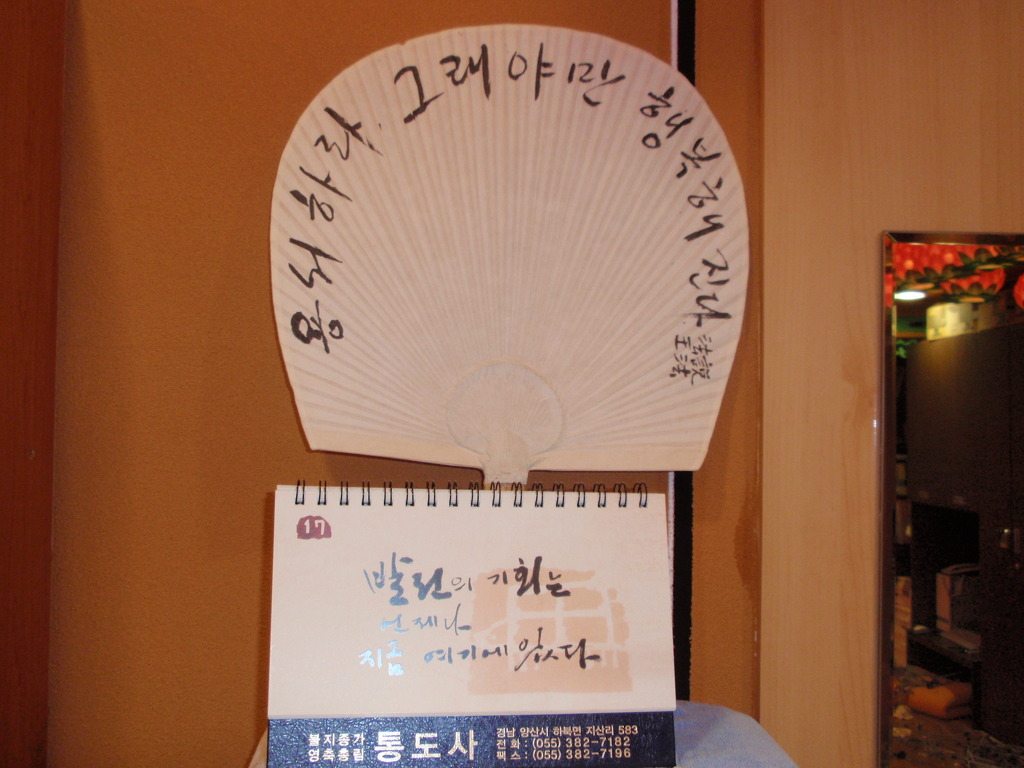 용서하라. 그래야만 행복해진다.
法說
王法
17
발전의 기회는
언제나
지금 여기에 있다
불지종가
영축총림
통도사
경남 양산시 하북면 지산리 583
전화 : (055) 382-7182
팩스 : (055) 382-7196